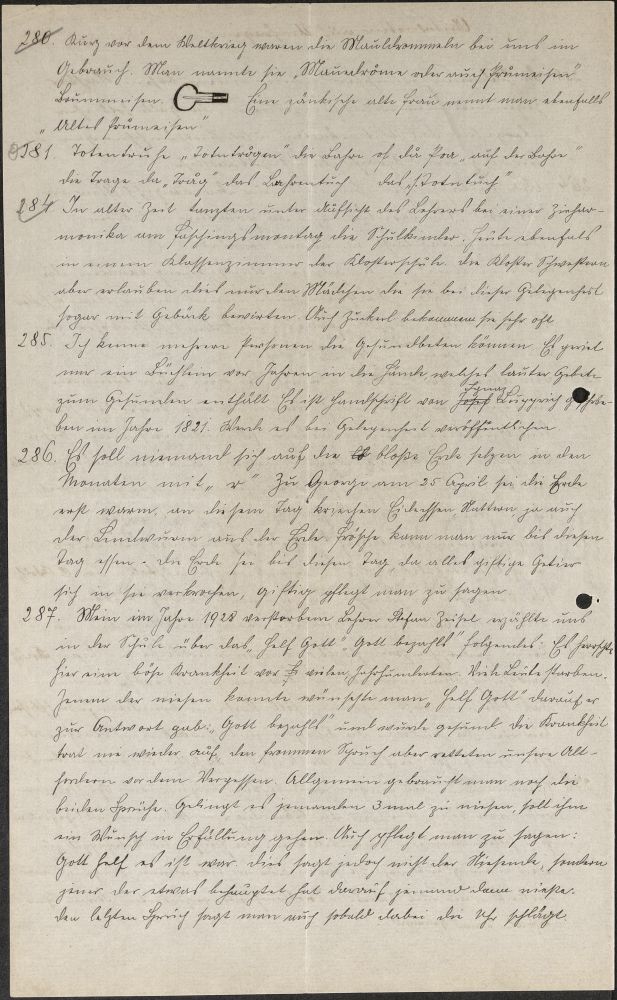 280. Kurz vor dem Weltkrieg waren die Mauldrommeln bei uns im
Gebrauch. Man nannte sie „Mauedrôme oder auch Prûmeisen"
Brummeisen. Eine zänkische alte Frau nennt man ebenfalls
„Altes Prûmeisen"
281. Totentruhe „Totntrôgen" die Bahre of då Poa „auf der Bahre"
die Trage da „Tråg" das Bahrentuch das „Totntuch"
284 In alter Zeit tanzten unter Aufsicht des Lehrers bei einer Ziehar-
monika am Faschingsmontag die Schulkinder. Heute ebenfals
in einem Klassenzimmer der Klosterschule. Die Kloster Schwestern
aber erlauben dies nur den Mädchen die sie bei dieser Gelegenheit
sogar mit Gebäck bewirten. Auch Zuckerl bekommen sie sehr oft
285. Ich kenne mehrere Personen die Gesundbeten können. Es geriet
mir ein Büchlein vor Jahren in die Hände welches lauter Gebete
zum Gesunden enthält. Es ist Handschrift von Josef Ignaz geschrie-
ben im Jahre 1821. Werde es bei Gelegenheit veröffentlichen
286. Es soll niemand sich auf die bloße Erde setzen in den
Monaten mit „r" Zu George am 25 April sei die Erde
erst warm, an diesem Tag kriechen Eidechsen Nattern ja auch
der Lindwurm aus der Erde. Frösche kann man nur bis diesen
Tag essen. Die Erde sei bis diesen Tag, da alles giftige Getier
sich in sie verkrochen, giftig pflegt man zu sagen
287. Mein im Jahre 1928 verstorbener Lehrer Stefan Zeisel erzählte uns
in der Schule über das „Helf Gott" „Gott bezahls" folgendes: Es herrschte
hier eine böse Krankheit vor vielen Jahrhunderten. Viele Leute starben.
Jenem der niesen konnte wünschte man „Helf Gott" darauf er
zur Antwort gab: „Gott bezahls" und wurde gesund. Die Krankheit
trat nie wieder auf, den frommen Spruch aber retteten unsere Alt-
fordern vor dem Vergessen. Allgemein gebraucht man noch die
beiden Sprüche. Gelingt es jemanden 3 mal zu niesen, soll ihm
ein Wunsch in Erfüllung gehen. Auch pflegt man zu sagen:
Gott helf es ist war. Dies sagt jedoch nicht der Niesende, sondern
jener der etwas behauptet hat darauf jemand dann nieste.
Den letzten Spruch sagt man auch sobald dabei die Uhr schlägt.